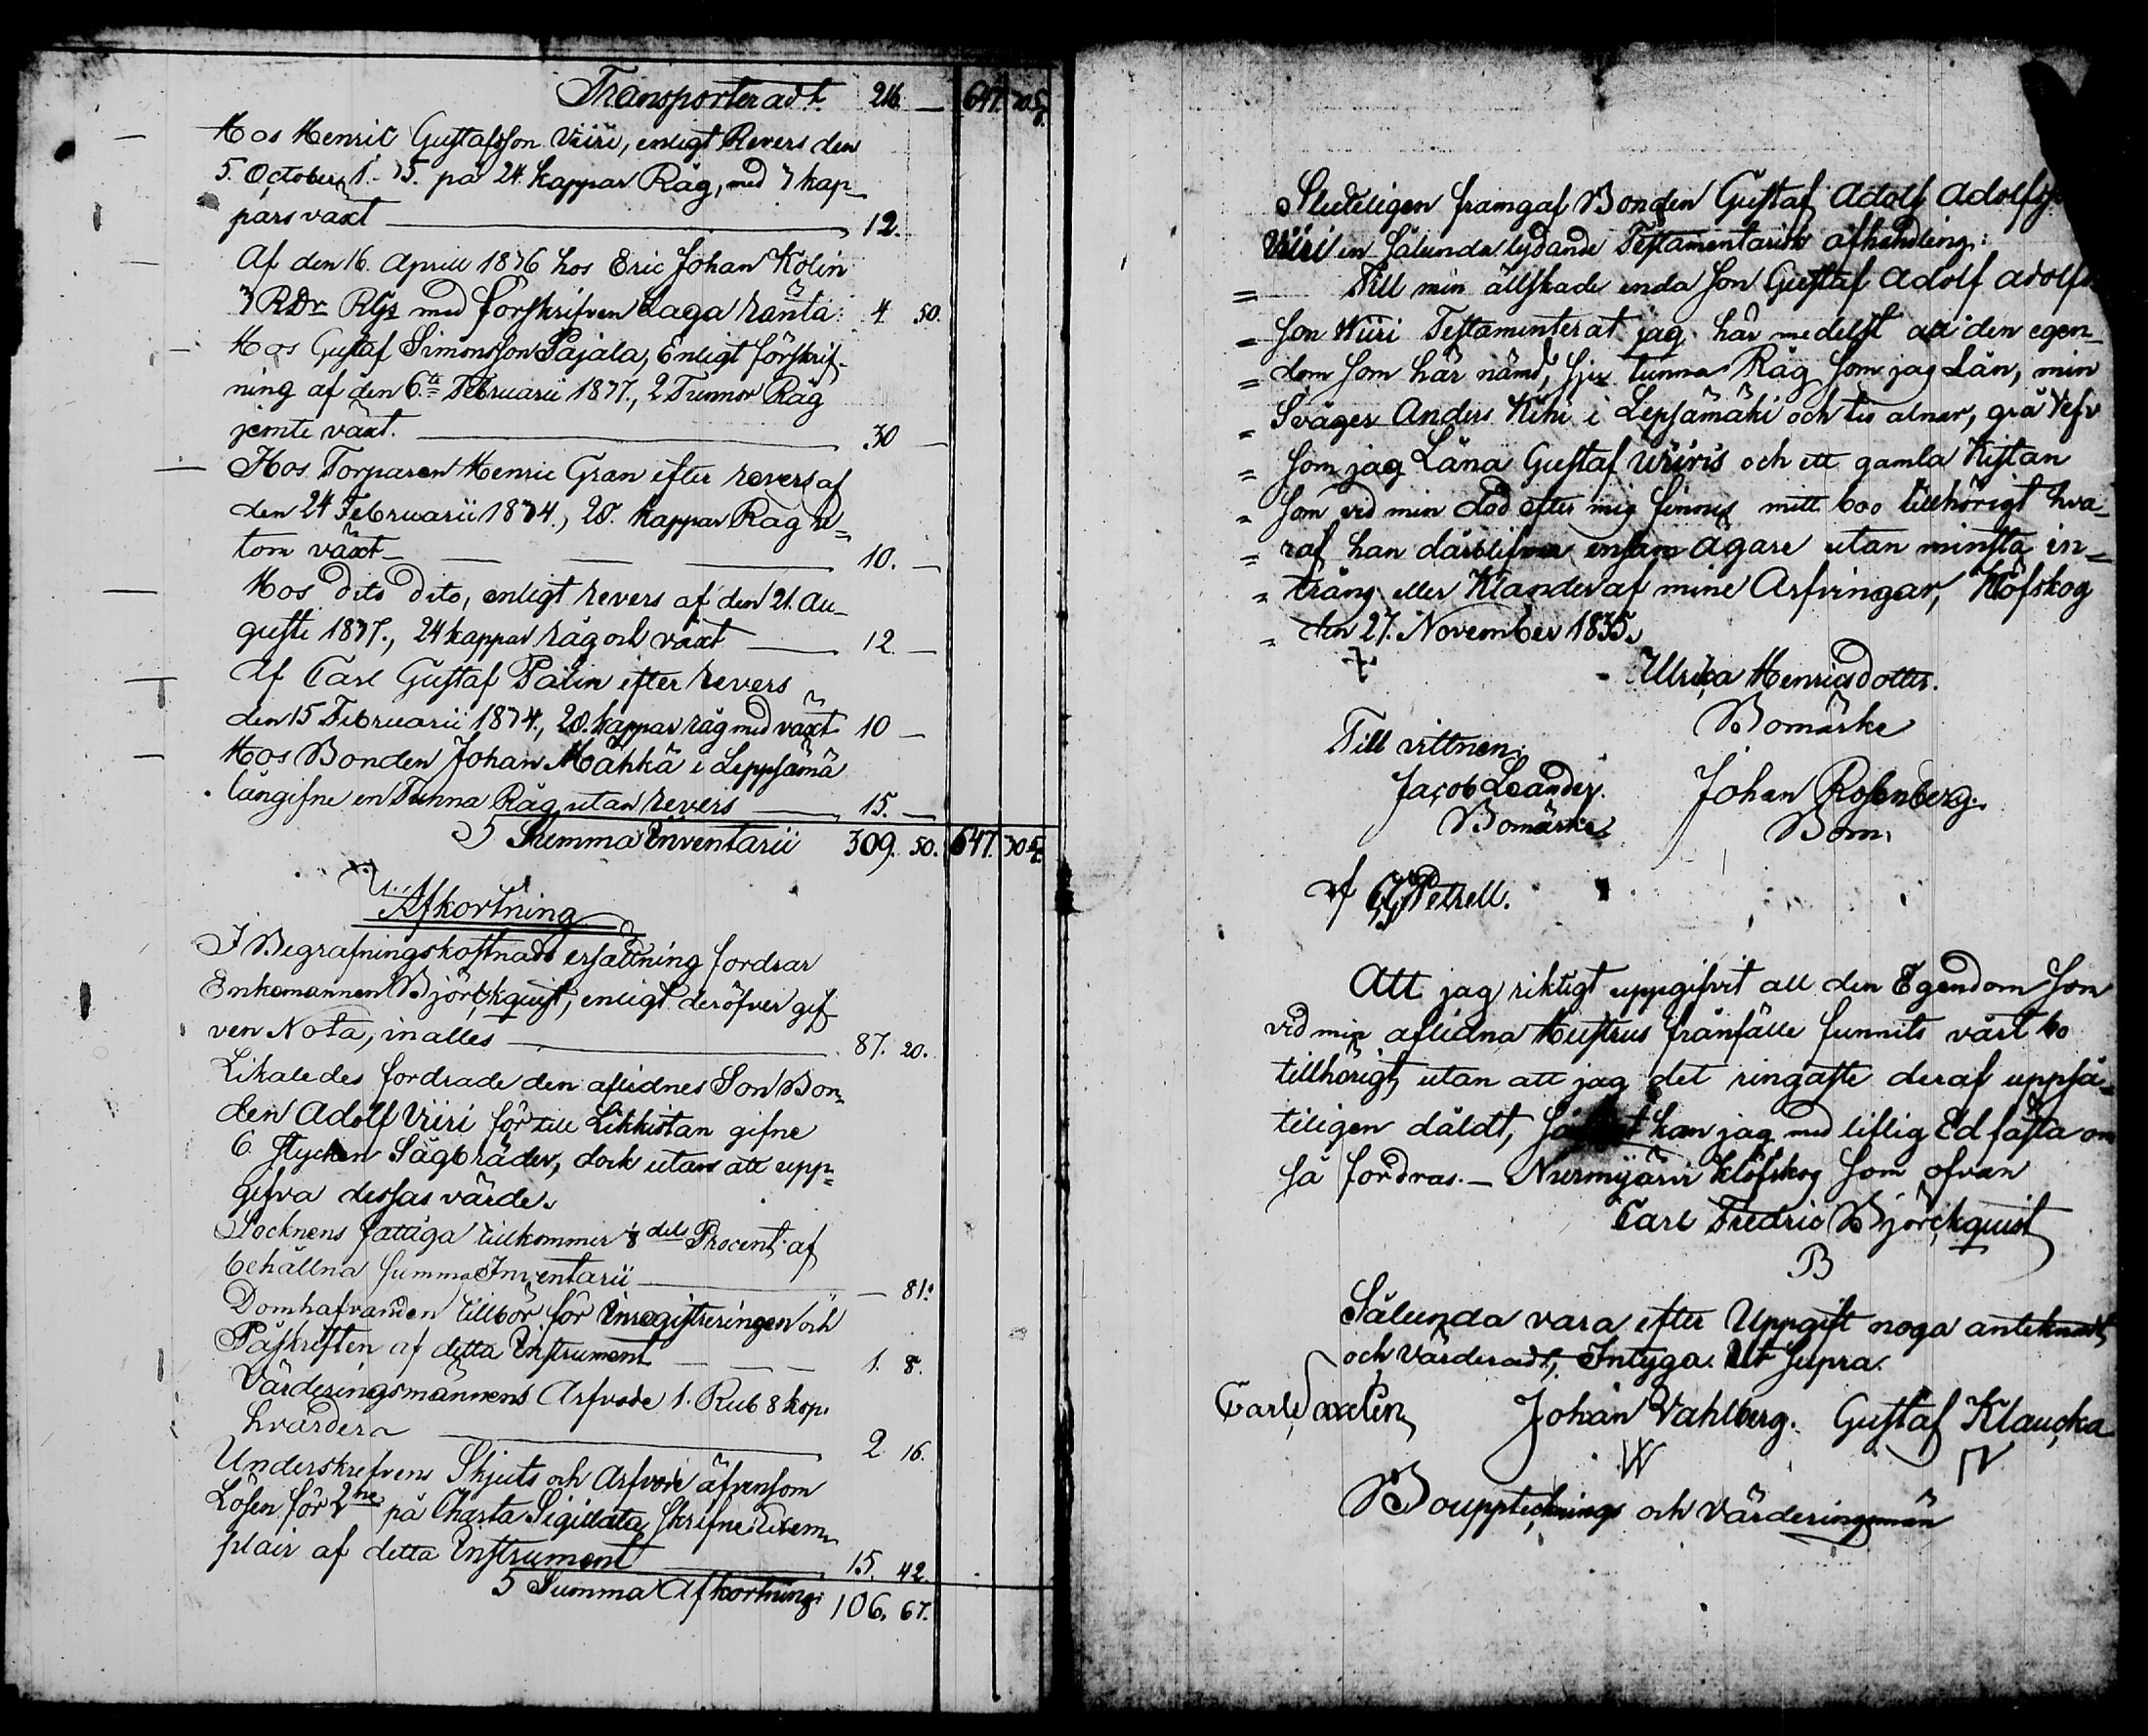 Transporteradt. 216. — 647. 30 5/7.
Hos Henric Gustafsson Viiri, enligt Revers den
5. October på 24. kappar Råg, med 7 kap-
pars växt — 12.
Af den 16. Aprill 1836 hos Eric Johan Kolin
3 RDr RGs med förskrifven Laga ränta: 4. 50.
Hos Gustaf Simonsson Pajala, Enligt förskrif-
ning af den 6.te Februarii 1837., 2 Tunnor Råg
jemte växt. — 30 —
Hos Torparen Henric Gran efter revers af
den 24 Februarii 1834., 20. kappar Råg u=
tom växt — 10. —
Hos dito dito, enligt revers af den 21. Au-
gusti 1837., 24 kappar råg och växt — 12. —
Af Carl Gustaf Palin efter revers
den 15 Februarii 1834., 20. kappar råg med växt 10 —
Hos Bonden Johan Mähkä i Leppsämä
långifne en Tunna Råg utan revers — 15. —
Summa Inventarii 309. 50. 647. 30 5/7.
Afkortning
I Begrafningskostnads ersättning fordrar
Enkemannen Björckquist, enligt deröfver gif-
ven Nota, in alles — 87. 20.
Likaledes fordrade den aflidnes Son Bon-
den Adolf Viiri för till Likkistan gifne
6. stycken Sågbräder, dock utan att upp=
gifva dessas värde.
Socknens fattiga tillkommer 1/8 dels Procent af
behållna summa Inventarii — 81.
Domhafvanden tillkör för Inregistreringen och
Påskriften af detta Instrument — 1. 8.
Värderingsmännens Arfvode 1. Rub 8 kop.
hvardera — 2 16.
Underskrefvens Skjuts och Arfvode äfvensom
Lösen för 2ne på Charta Sigillata skrifne Exem-
plair af detta Instrument — 15. 42.
Summa Afkortning: 106. 67.
Sluteligen framgaf Bonden Gustaf Adolf Adolfs
Viiri en sålunda lydande Testamentarisk afhandling:
= Till min älskade enda son Gustaf Adolf Adolfs
= son Wiiri Testamenterat jag här medelst all den egen-
= dom som här nämd, tunna Råg som jag Lån, min
= Svåger Anders Kihi i Lepsämähi och tio alnar, grå
= som jag Låna Gustaf Wiiris och ett gamla Kistan
= som vid min död efter mig finnes mitt boo tillhörigt hva-
= raf han därblifva ensam ägare utan minsta in=
= trång eller Klander af mine Arfvingar, Klöfskog
= den 27. November 1835.
Ulrica Henricsdotter.
Bomärke
Till vittnen:
Jacob Leander. Johan Rosenberg.
Bomärke Bom.
Petrell.
Att jag riktigt uppgifvit all den Egendom som
vid min aflidna Hustrus frånfälle funnits vårt bo
tillhörigt, utan att jag det ringaste deraf uppså-
teligen dåldt, kan jag med liflig Ed fästa om
så fordras. — Nurmijärvi Klöfskog som ofvan
Carl Fredric Björckquist
B
Sålunda vara efter Uppgift noga antecknadt,
och värderadt, Intyga. Ut supra.
Carl Saxlen, Johan Vahlberg. Gustaf Klaucka
W
Boupptecknings och Värderingsmän